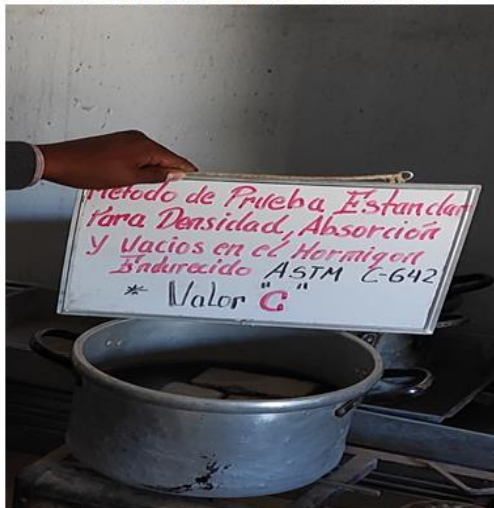 Método de Prueba Estandar
Para Densidad, Absorción
y Vacios en el Hormigon
Endurecido ASTM C-642
* Valor "C"